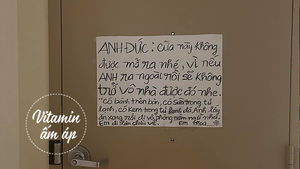 ANH ĐỨC: cửa này không
được mở ra nhé, vì nếu
ANH ra ngoài rồi sẽ không
trở vô nhà được đó nhe.
"Có bánh trên bàn, có Sữa trong tủ
lạnh, có Kem trong tủ lạnh đó Anh. Hãy
ăn xong rồi đi vô phòng nằm ngủ nhé.
Em đi làm chiều về.
Vitamin
ấm áp